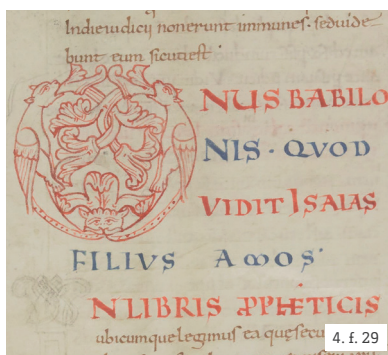 Indie iudicij non erunt immunes · sed uide
bunt eum sicuti est ·
ONUS BABILO
NIS · QVOD
VIDIT ISAIAS
FILIVS AMOS ·
N LIBRIS PPHETICIS
ubicumque legimus ea quę secu
4. f. 29